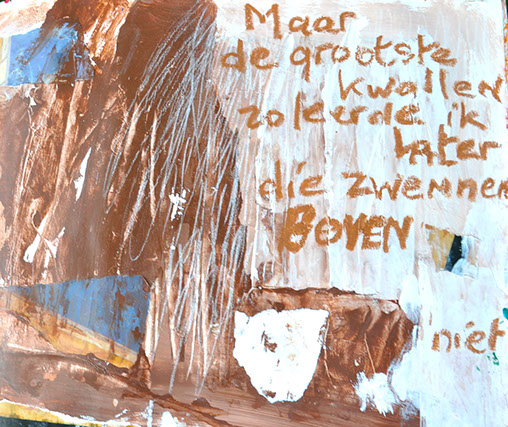 Maar
de grootste
kwallen
zo leerde ik
later
die zwemmen
BOVEN
niet